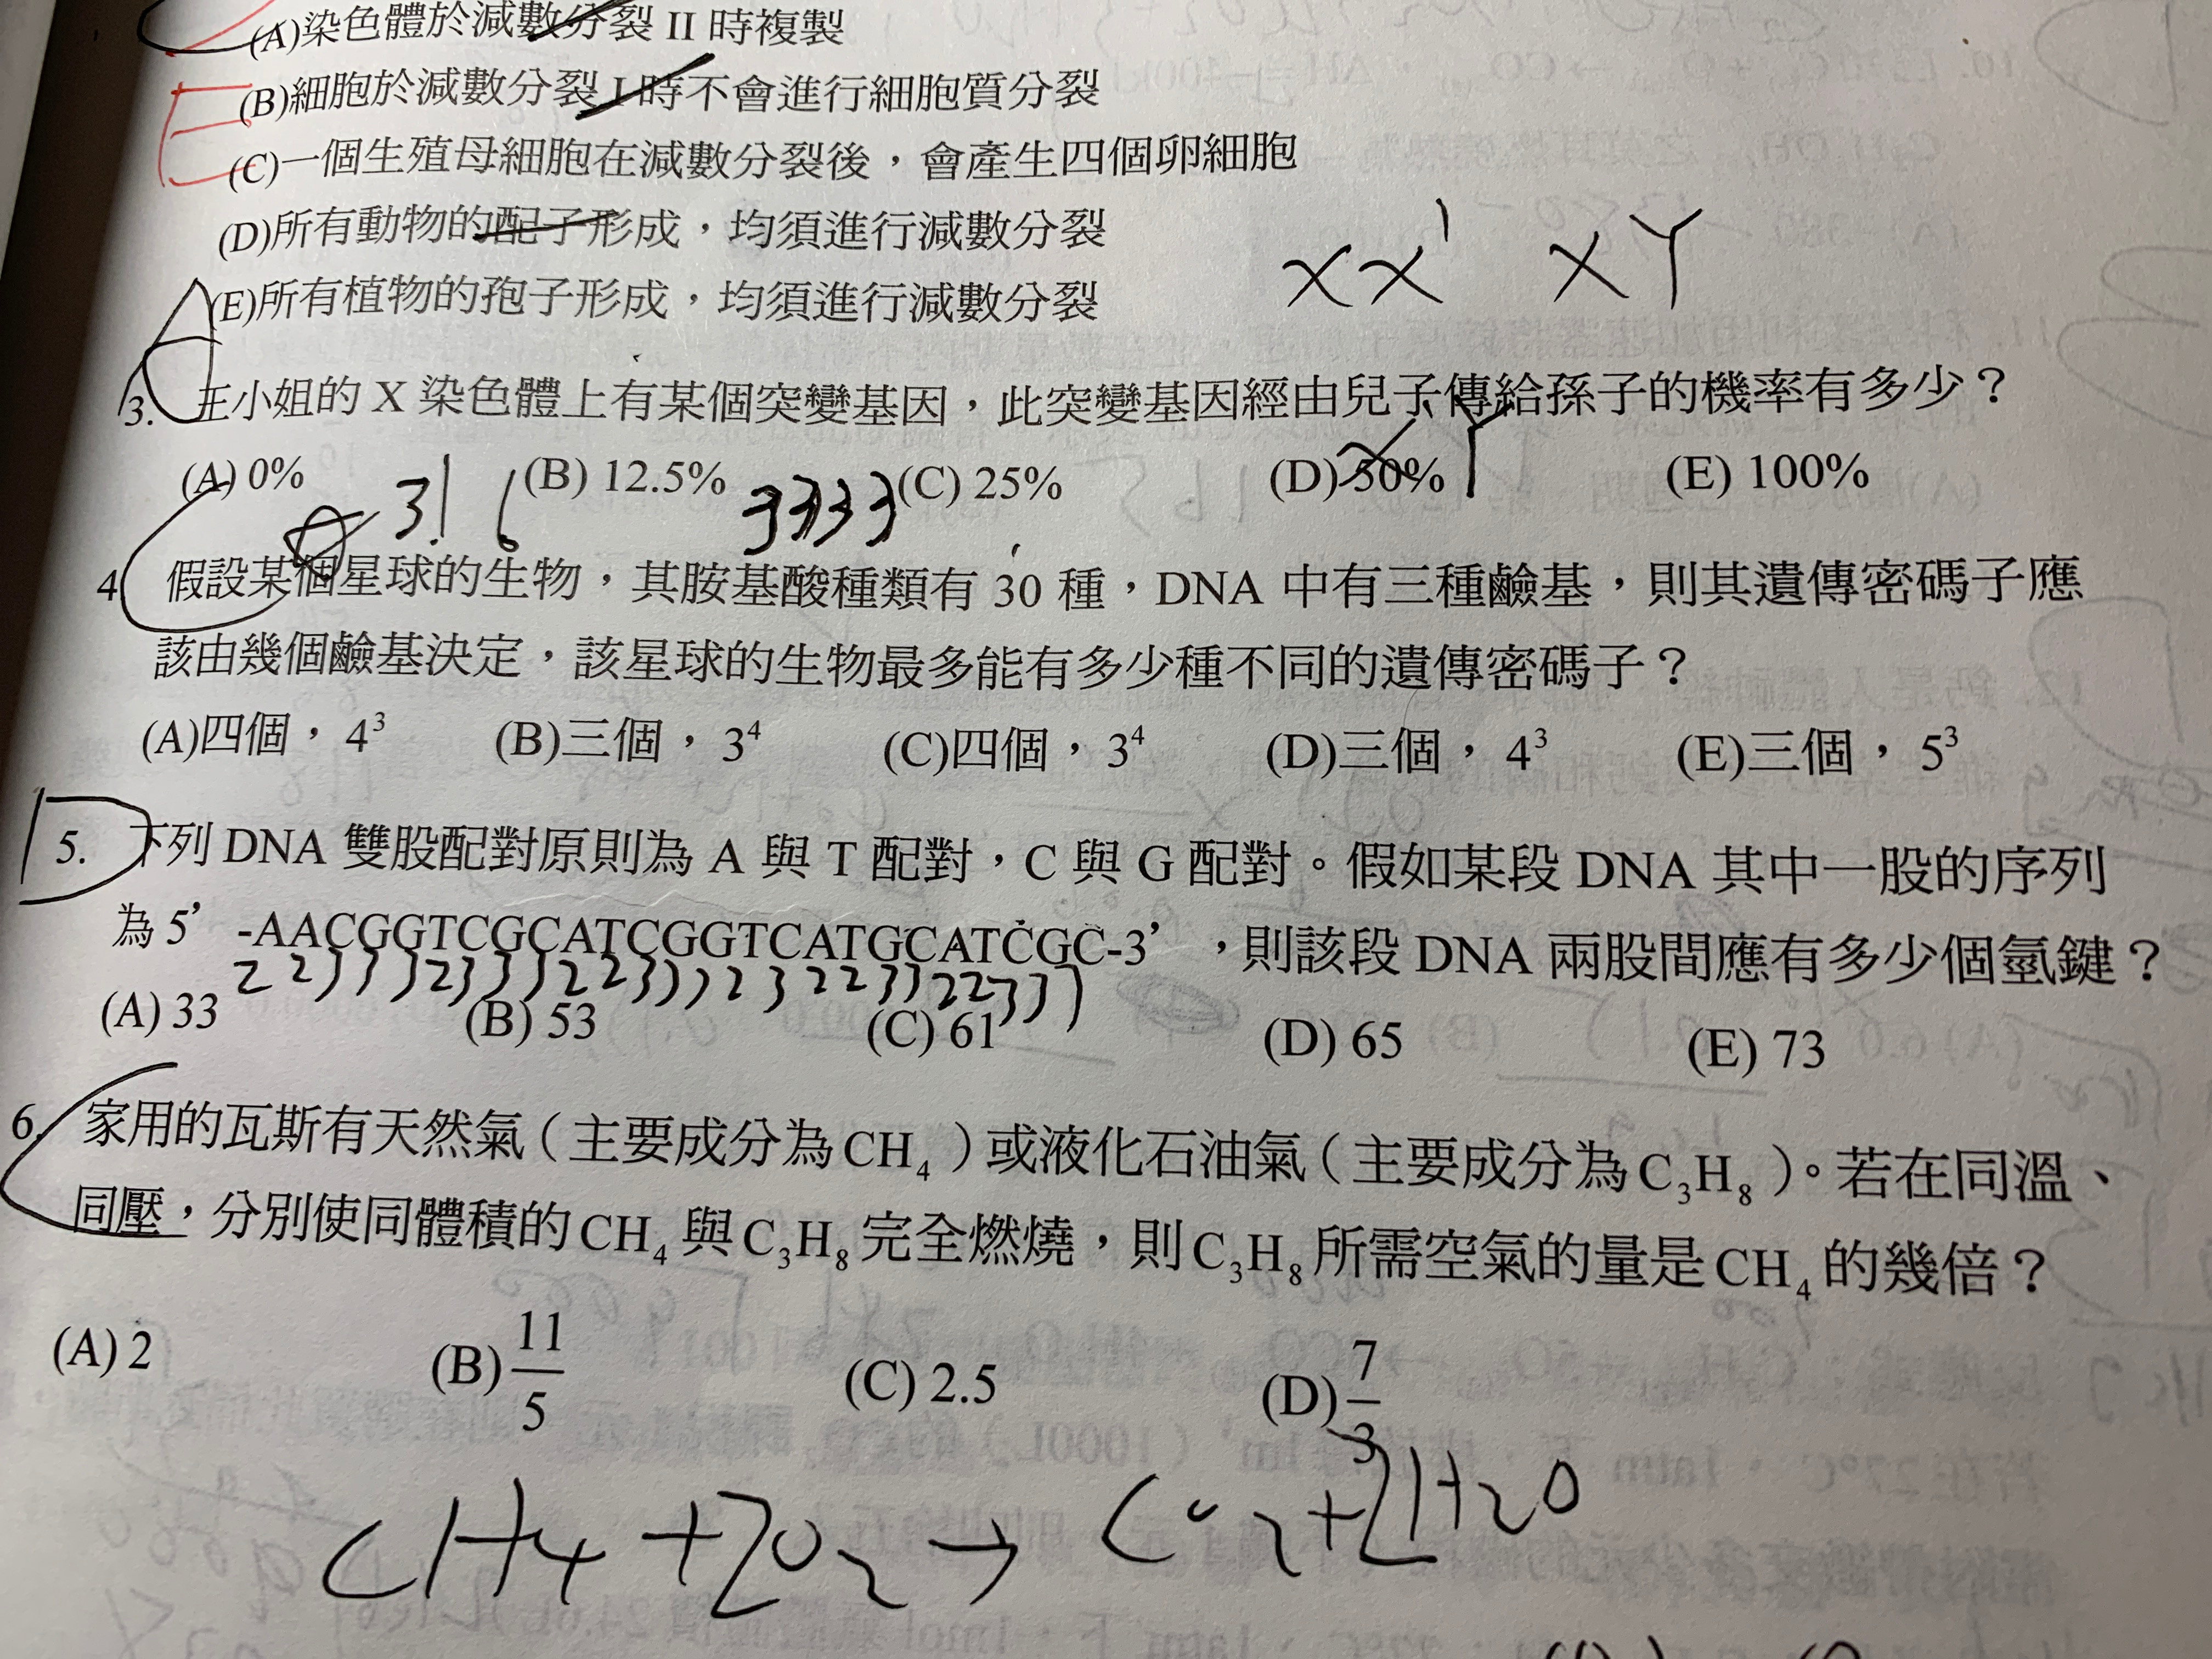 (A)染色體於減數分裂 II 時複製
(B)細胞於減數分裂 I 時不會進行細胞質分裂
(C)一個生殖母細胞在減數分裂後，會產生四個卵細胞
(D)所有動物的配子形成，均須進行減數分裂
(E)所有植物的孢子形成，均須進行減數分裂
E
XX' XY
A
3. 王小姐的 X 染色體上有某個突變基因，此突變基因經由兒子傳給孫子的機率有多少？
(A) 0% (B) 12.5% (C) 25% (D) 50% (E) 100%
3333
4 假設某個星球的生物，其胺基酸種類有 30 種，DNA 中有三種鹼基，則其遺傳密碼子應
該由幾個鹼基決定，該星球的生物最多能有多少種不同的遺傳密碼子？
(A)四個，4³ (B)三個，3⁴ (C)四個，3⁴ (D)三個，4³ (E)三個，5³
D
5. 下列 DNA 雙股配對原則為 A 與 T 配對，C 與 G 配對。假如某段 DNA 其中一股的序列
為 5’ -AACGGTCGCATCGGTCATGCATCGC-3’ ，則該段 DNA 兩股間應有多少個氫鍵？
2 2 3 3 3 2 3 3 3 2 2 3 3 3 2 3 2 2 3 3 2 2 3 3 3
(A) 33 (B) 53 (C) 61 (D) 65 (E) 73
6. 家用的瓦斯有天然氣（主要成分為CH₄）或液化石油氣（主要成分為C₃H₈）。若在同溫、
同壓，分別使同體積的CH₄與C₃H₈完全燃燒，則C₃H₈所需空氣的量是CH₄的幾倍？
(A) 2 (B) 11/5 (C) 2.5 (D) 7/3
CH4 +2O2 → CO2+2H2O